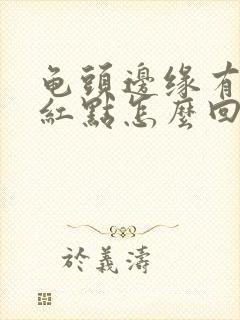 龟頭邊缘有
紅點怎麼回
於義濤